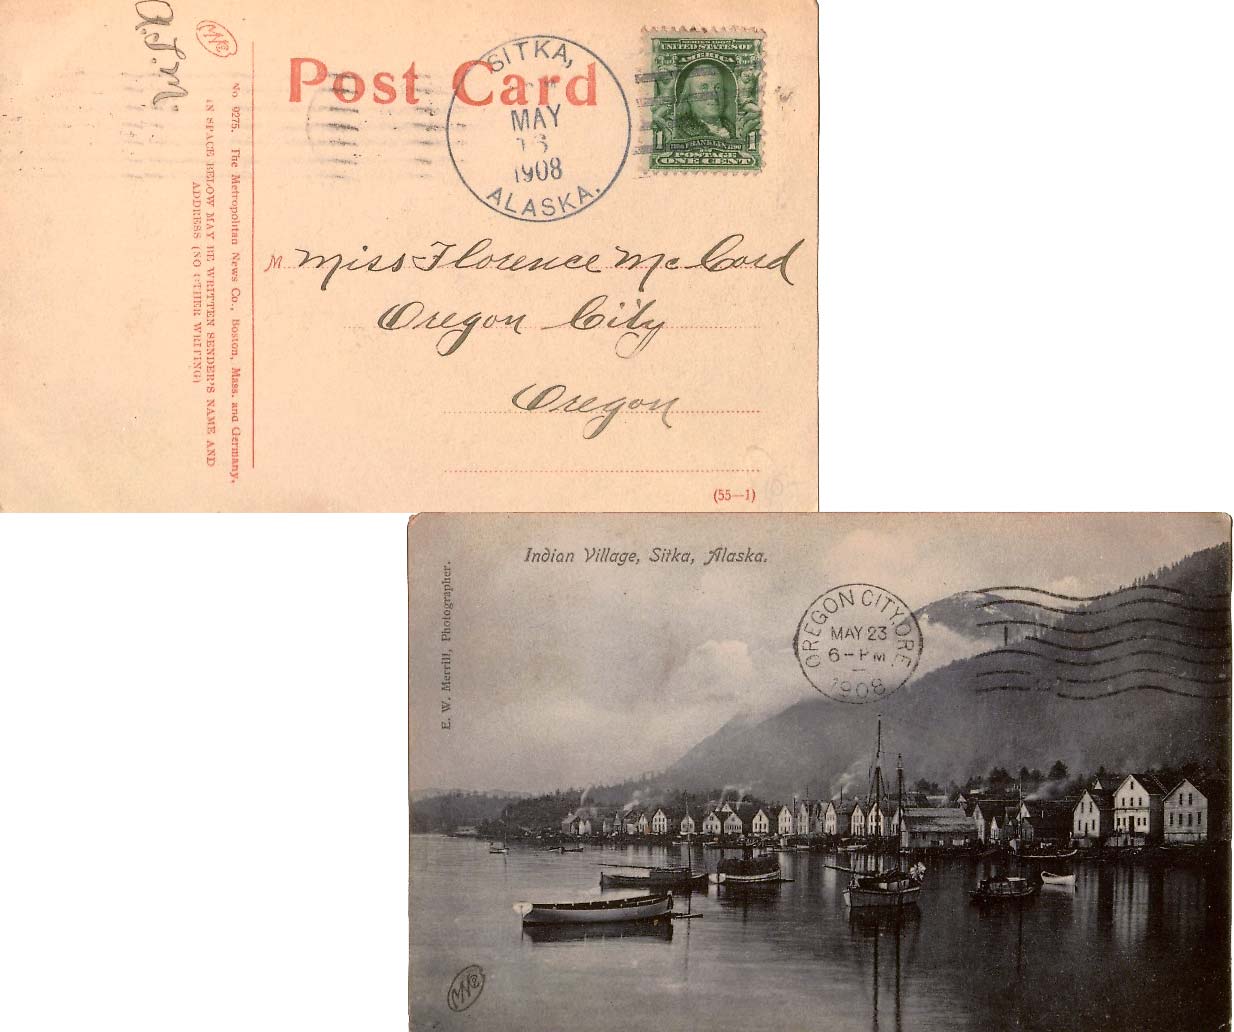 A.S.M.
MNCo
Post Card
SITKA,
MAY
13
1908
ALASKA.
SERIES 1902
UNITED STATES OF
AMERICA
1 FRANKLIN 1
POSTAGE
ONE CENT
No 9275. The Metropolitan News Co., Boston, Mass. and Germany.
IN SPACE BELOW MAY BE WRITTEN SENDER'S NAME AND
ADDRESS (NO OTHER WRITING)
M Miss Florence McCord
Oregon City
Oregon
(55—1)
Indian Village, Sitka, Alaska.
E. W. Merrill, Photographer.
OREGON CITY, ORE.
MAY 23
6-PM
1908
MNCo